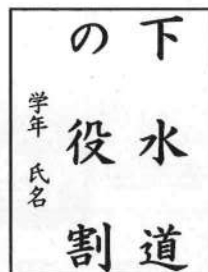 下水道
の役割
学年 氏名